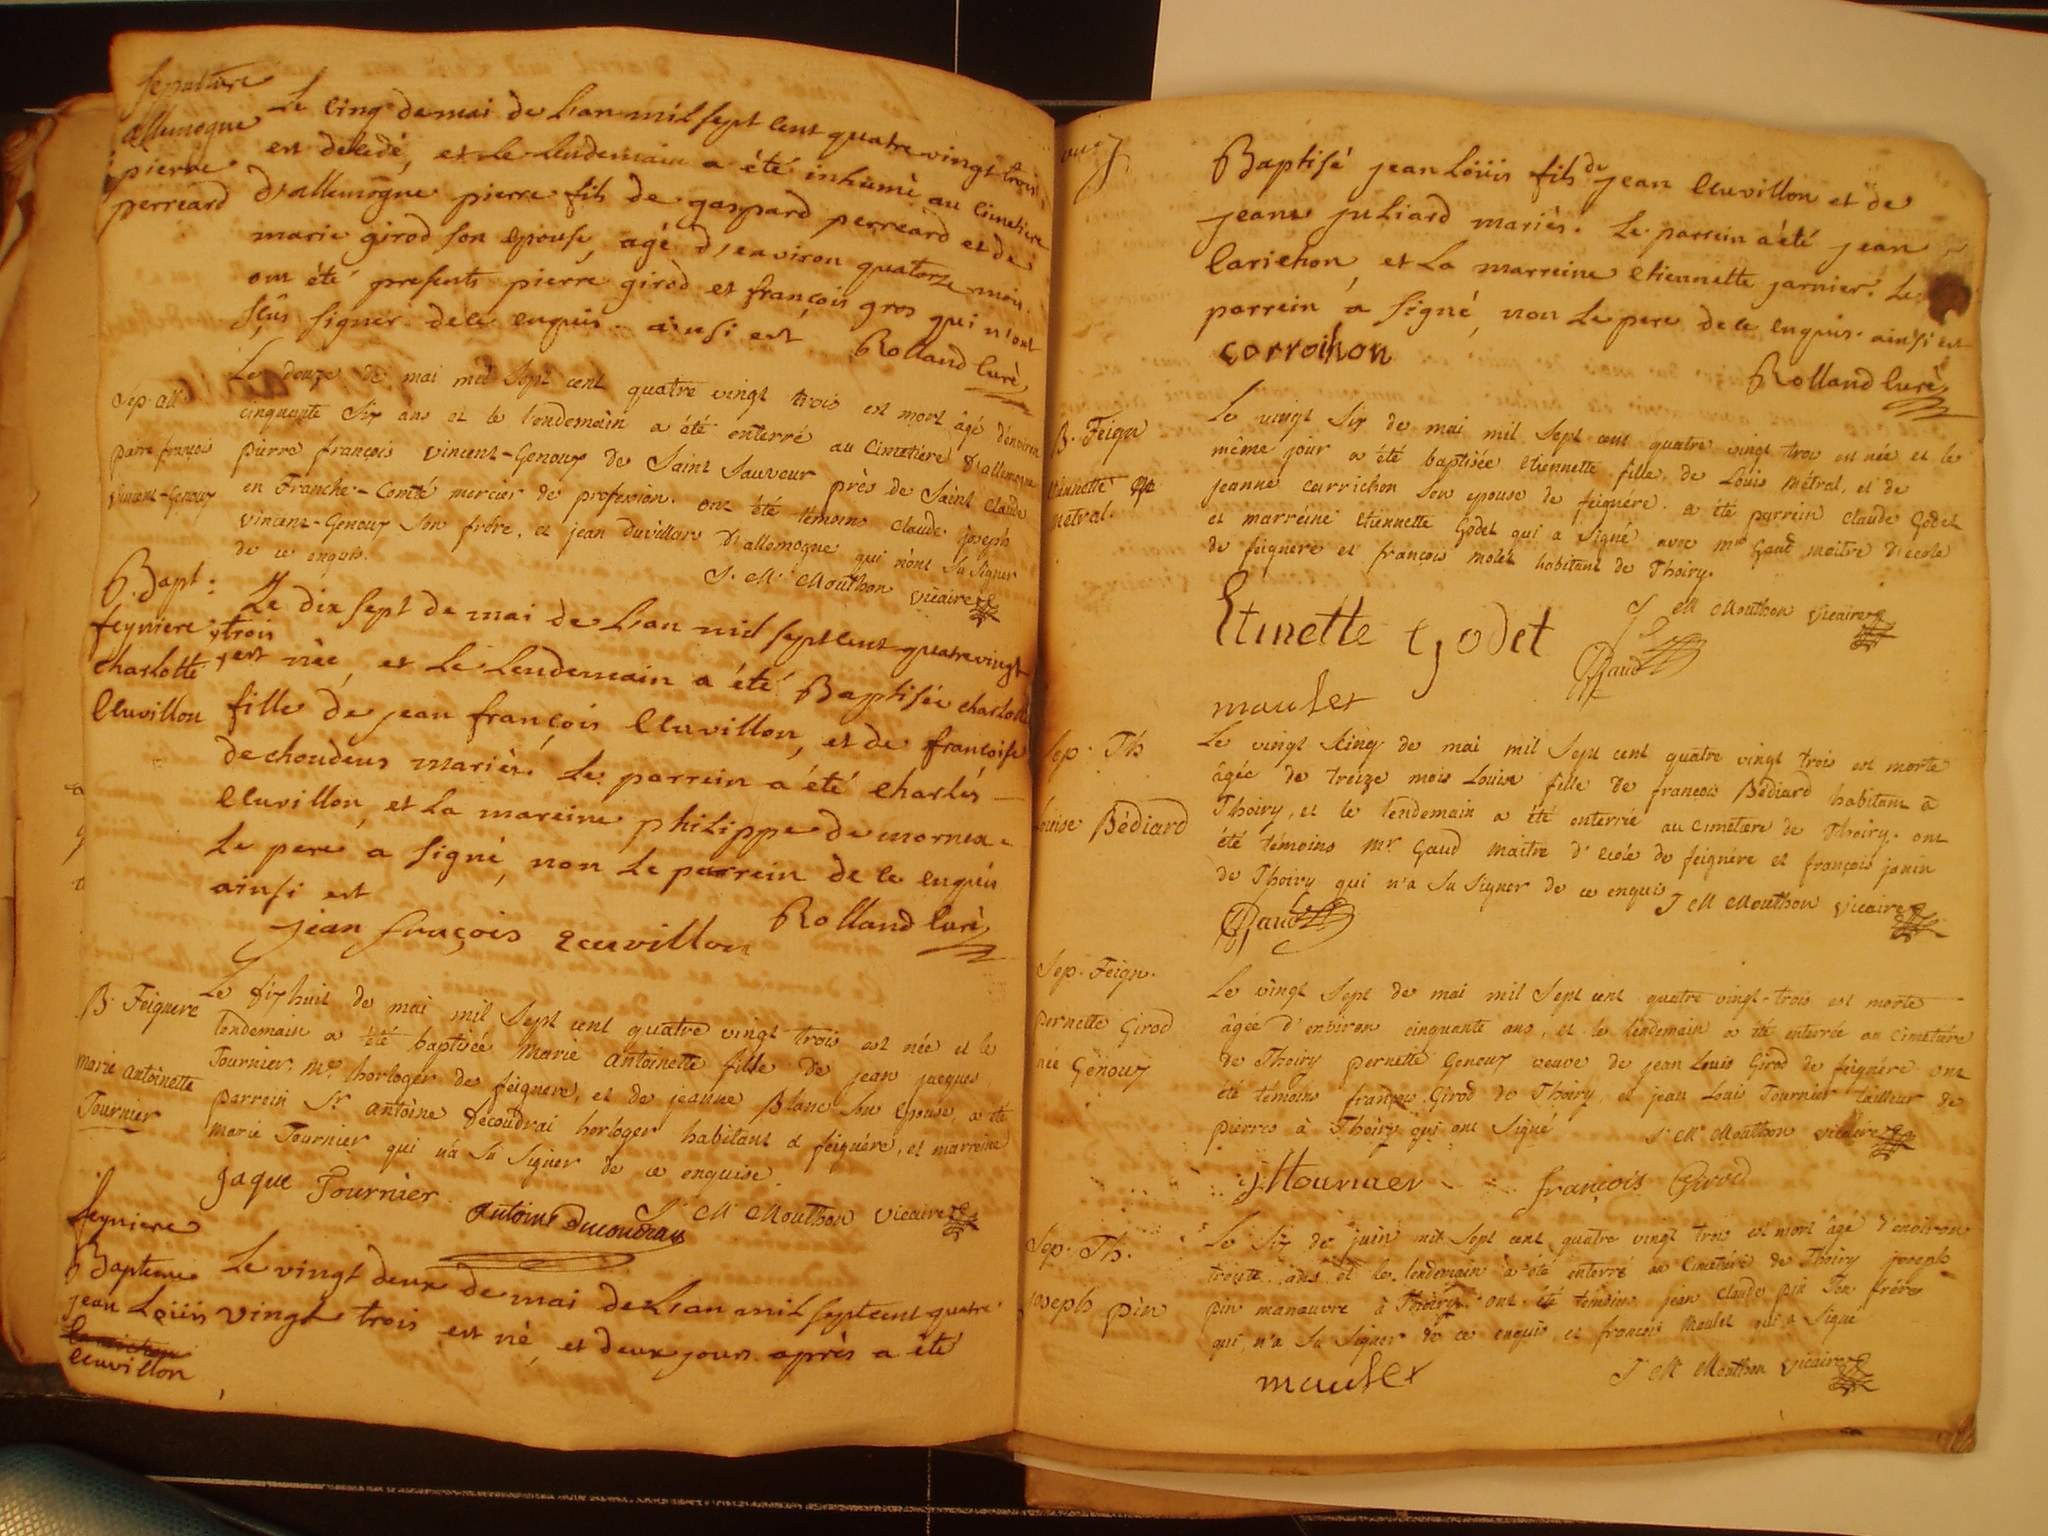 sepulture
allemogne
pierre
perreard
Le cinq de mai de L'an mil sept cent quatre vingt trois
est decedé, et le lendemain a été inhumé au cimetiere
d'allemogne pierre fils de gaspard perreard et de
marie girod son epouse, agé d'environ quatorze mois.
ont été presents pierre girod et françois gros qui n'ont
sçus signer de ce enquis. ainsi est
Rolland curé
Sep. all.
pierre françois
Vincent-Genoux
Le douze de mai mil sept cent quatre vingt trois est mort âgé d'environ
cinquante six ans et le lendemain a été enterré au Cimetiére d'allemogne
pierre françois Vincent-Genoux de Saint Sauveur près de Saint Claude
en Franche-Comté mercier de profession. ont été témoins Claude joseph
Vincent-Genoux Son frére, et jean duvillard d'allemogne qui n'ont Su Signer
de ce enquis.
J. M. Mouthon Vicaire
Bapt:
feyniere
charlotte
Cuvillon
Le dix sept de mai de L'an mil sept cent quatre vingt
trois
est née, et Le Lendemain a été Baptisée charlotte
fille de jean françois Cuvillon, et de françoise
dechoudens mariés. Le parrein a été charles
Cuvillon, et La mareine philippe de mornex.
Le pere a signé, non Le parrein de ce enquis
ainsi est
Rolland curé
jean françois
B. Feignere
marie antoinette
Tournier
Le dix huit de mai mil Sept cent quatre vingt trois est née et le
lendemain a été baptisée Marie antoinette fille de jean jacques
Tournier, Me. horloger de feignere, et de jeanne Blanc Son Epouse, a été
parrein Sr. antoine Decoudrai horloger habitant à feignére, et marreine
Marie Tournier qui n'a Su Signer de ce enquise.
jaque Tournier
antoine Ducoudray
J. M. Mouthon Vicaire
feyniere
Bapteme
jean Loüis
Cuvillon
Le vingt deux de mai de L'an mil sept cent quatre
vingt trois est né, et deux jours après a été
Baptisé jean Loüis fils de jean Cuvillon et de
jeane juliard mariés. Le parrein a été jean
Carichon, et La marreine Etiennette jarnier. Le
parrein a signé, non Le pere de ce enquis. ainsi est
carroihon
Rolland curé
B. Feign
Etiennette
métral.
Le vingt Six de mai mil Sept cent quatre vingt trois est née et le
même jour a été baptisée Etiennette fille de Loüis Métral, et de
jeanne Carrichon Son epouse de feignére. a été parrein Claude Godet
et marréine Etiennette Godet qui a Signé avec mr Gaud maitre d'école
de feignere et françois molet habitant de Thoiry.
J M Mouthon Vicaire
Etinette Godet
Gaud
maulet
Sep. Th
Louise Bédiard
Le vingt Six de mai mil Sept cent quatre vingt trois est morte
âgée de treize mois Louise fille de françois Bédiard habitant à
Thoiry, et le lendemain a été enterrée au Cimetiere de Thoiry. ont
été témoins Mr Gaud Maitre d'école de feignére et françois janin
de Thoiry qui n'a Su Signer de ce enquis
J M Mouthon Vicaire
Gaud
Sep. Feign.
pernette Girod
née Génoux
Le vingt Sept de mai mil Sept cent quatre vingt-trois est morte
âgée d'environ cinquante ans, et le lendemain a été enterrée au Cimetiére
de Thoiry pernette Genoux veuve de jean Louis Girod de feignére. ont
été témoins françois Girod de Thoiry, et jean Louis Tournier tailleur de
pierres à Thoiry qui ont Signé
J. M. Mouthon Vicaire
françois Girod
Sep. Th.
joseph pin
Le Six de juin mil Sept cent quatre vingt trois est mort âgé d'environ
trente ans, et le lendemain a été enterré au Cimetiére de Thoiry joseph
pin manœuvre à Thoiry. ont été témoins jean claude pin Son frére
qui n'a Su Signer de ce enquis, et françois Maulet qui a Signé
J M Mouthon Vicaire
maulet